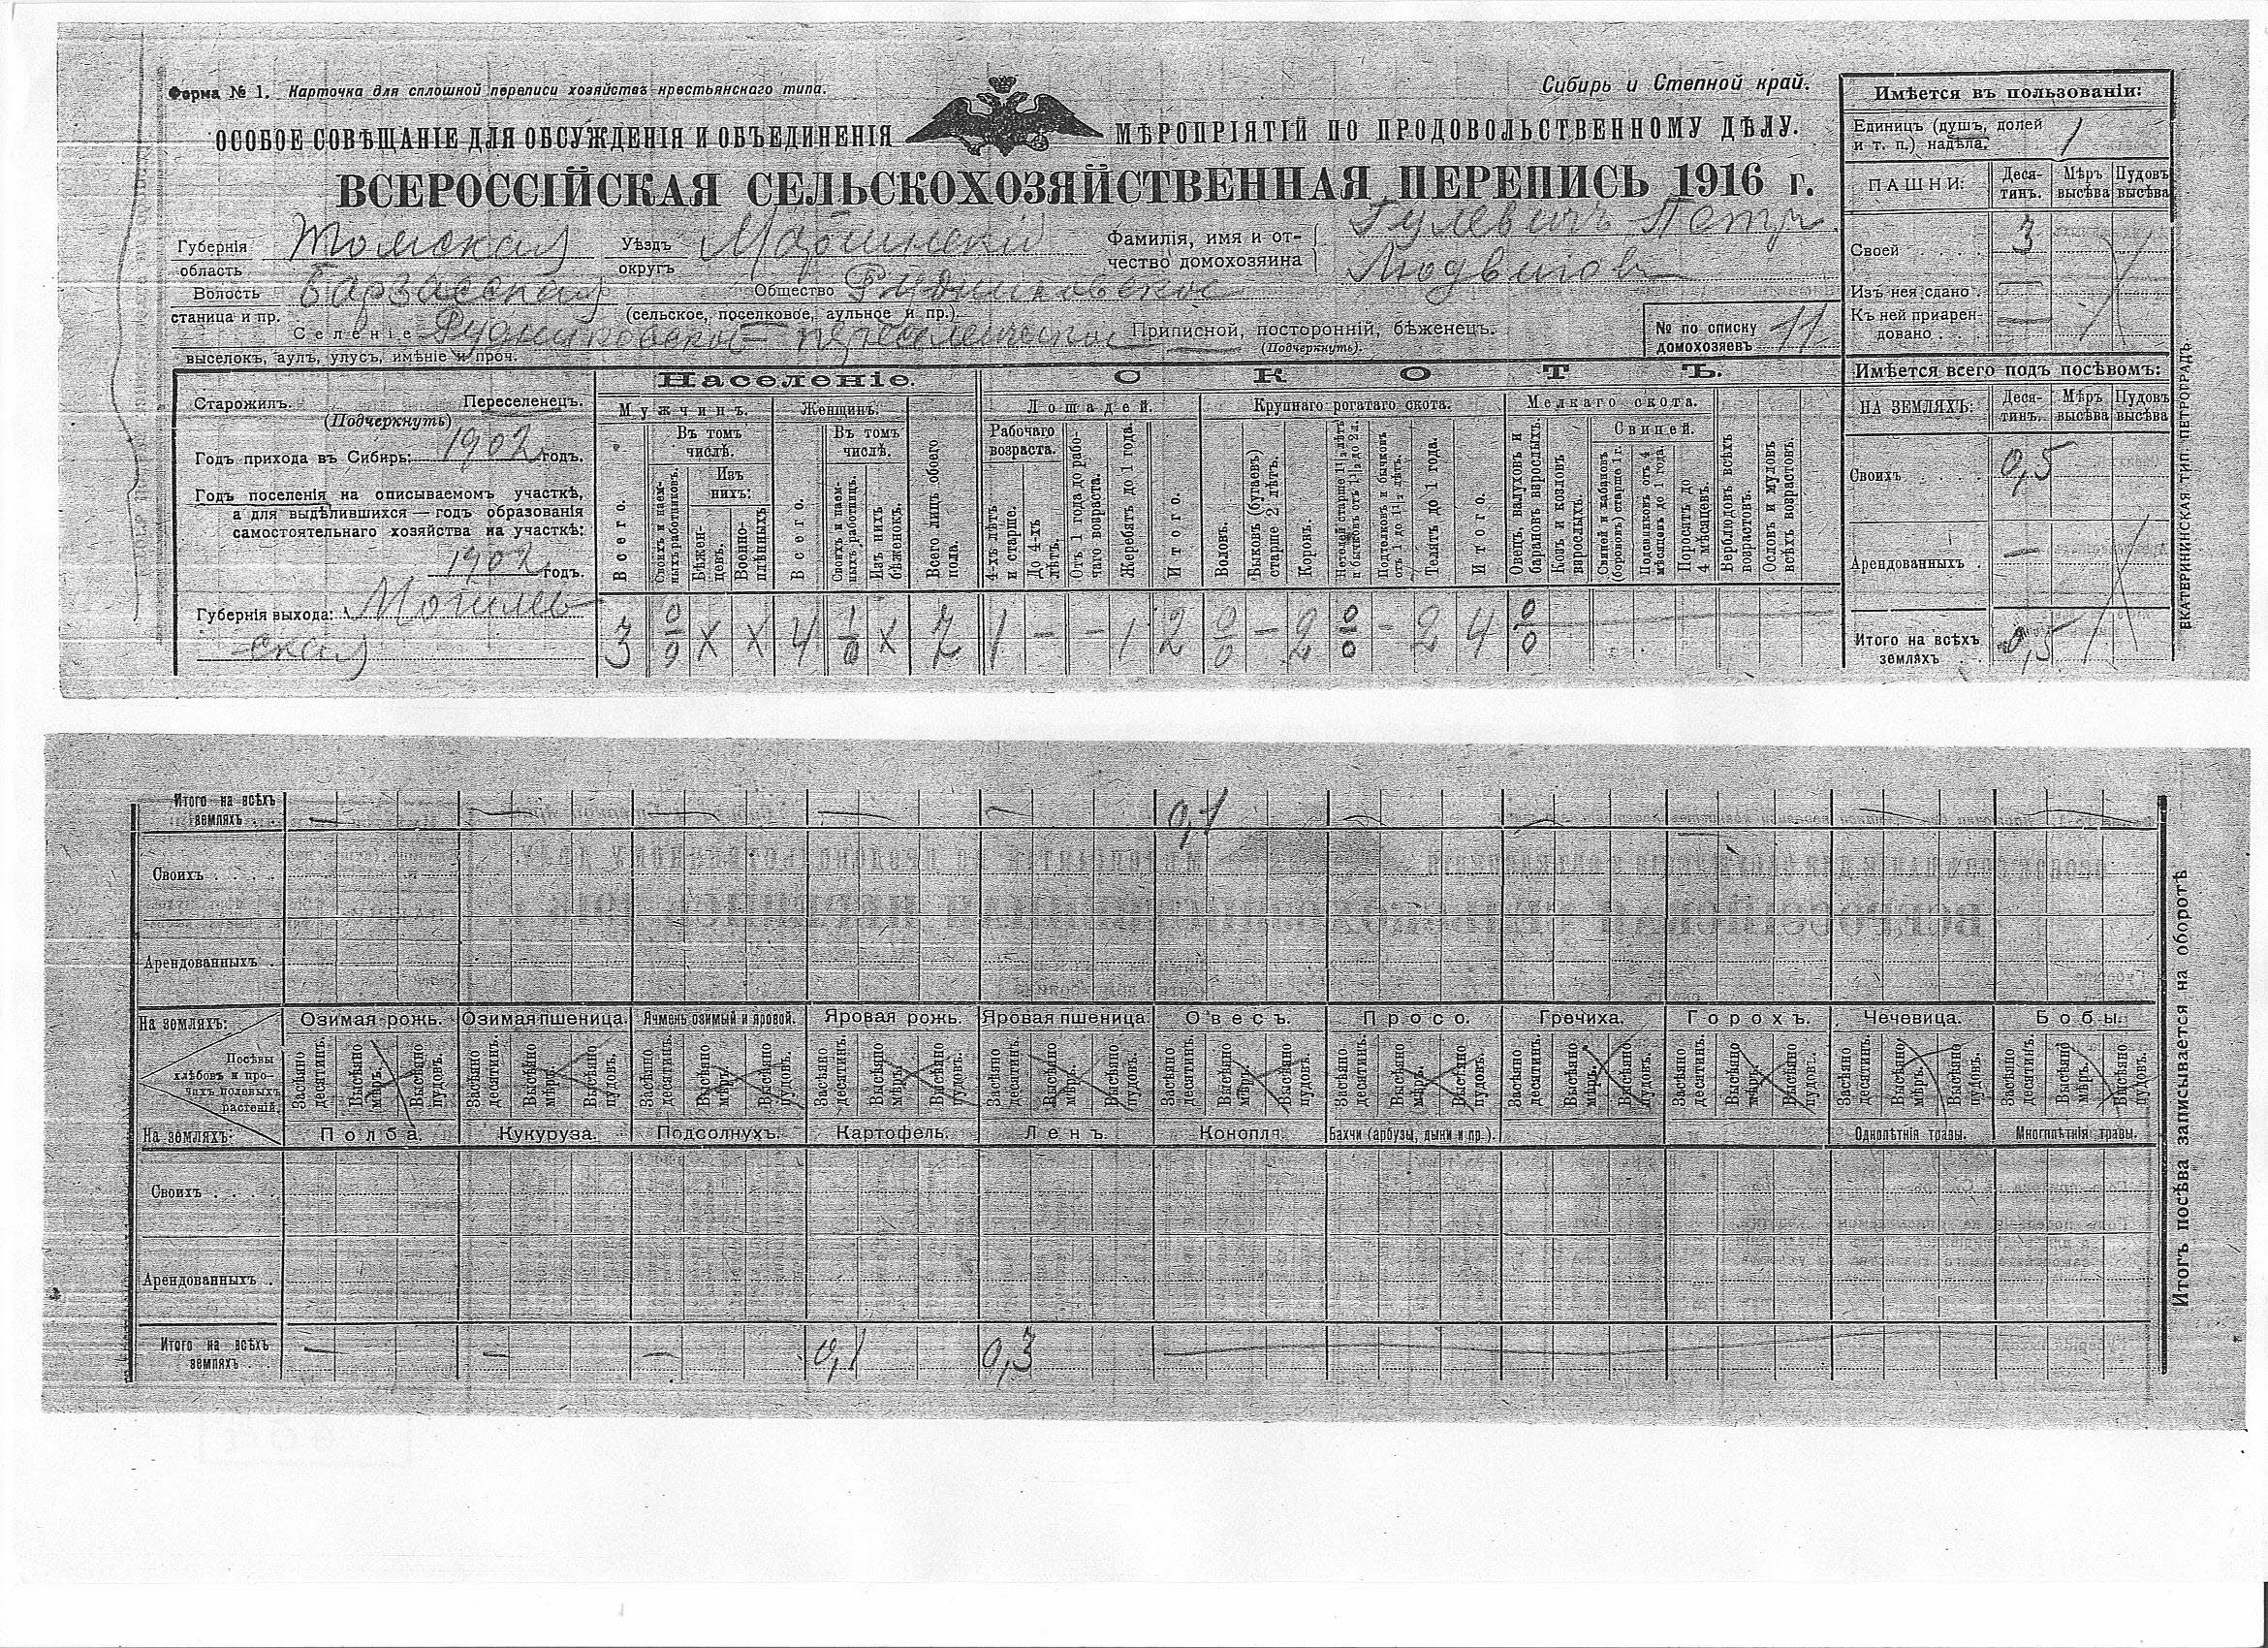 Форма № 1. Карточка для сплошной переписи хозяйствъ крестьянскаго типа.
Сибирь и Степной край.
ОСОБОЕ СОВѢЩАНІЕ ДЛЯ ОБСУЖДЕНІЯ И ОБЪЕДИНЕНІЯ МѢРОПРІЯТІЙ ПО ПРОДОВОЛЬСТВЕННОМУ ДѢЛУ.
ВСЕРОССІЙСКАЯ СЕЛЬСКОХОЗЯЙСТВЕННАЯ ПЕРЕПИСЬ 1916 г.
Губернія область Томская
Уѣздъ округъ Маріинскій
Фамилія, имя и отчество домохозяина Гулевичъ Петръ
Людвигов
Волость станица и пр. Барзасская
Общество Рудниковское
(сельское, поселковое, аульное и пр.).
Селеніе Рудниковское - переселенческ
выселокъ, аулъ, улусъ, имѣніе и проч.
Приписной, посторонній, бѣженецъ.
(Подчеркнуть).
№ по списку домохозяевъ 11
Старожилъ. Переселенецъ.
(Подчеркнуть)
Годъ прихода въ Сибирь: 1902 годъ.
Годъ поселенія на описываемомъ участкѣ,
а для выдѣлившихся — годъ образованія
самостоятельнаго хозяйства на участкѣ:
1902 годъ.
Губернія выхода: Могилев-
ская
Населеніе.
Мужчинъ. Женщинъ.
Всего.
Въ томъ числѣ.
Своихъ и наемныхъ работниковъ.
Изъ нихъ:
Бѣженцевъ.
Военноплѣнныхъ
Всего.
Въ томъ числѣ.
Своихъ и наемныхъ работницъ.
Изъ нихъ бѣженокъ.
Всего лицъ обоего пола.
3 0/0 х х 4 1/0 х 7
СКОТЪ.
Лошадей.
Рабочаго возраста.
4-хъ лѣтъ и старше.
До 4-хъ лѣтъ.
Отъ 1 года до рабочаго возраста.
Жеребятъ до 1 года.
Итого.
1 - - 1 2
Крупнаго рогатаго скота.
Воловъ.
Быковъ (бугаевъ) старше 2 лѣтъ.
Коровъ.
Нетелей старше 1½ лѣтъ и бычковъ отъ 1½ до 2 л.
Подтелковъ и бычковъ отъ 1 до 1½ лѣтъ.
Телятъ до 1 года.
Итого.
0/0 - 2 0/0 - 2 4
Мелкаго скота.
Овецъ, валуховъ и барановъ взрослыхъ.
Козъ и козловъ взрослыхъ.
Свиней.
Свиней и кабановъ (борововъ) старше 1 г.
Подсвинковъ отъ 4 мѣсяцевъ до 1 года.
Поросятъ до 4 мѣсяцевъ.
Верблюдовъ всѣхъ возрастовъ.
Ословъ и муловъ всѣхъ возрастовъ.
0/0
Имѣется въ пользованіи:
Единицъ (душъ, долей и т. п.) надѣла. 1
ПАШНИ: Десятинъ. Мѣръ высѣва Пудовъ высѣва
Своей 3
Изъ нея сдано —
Къ ней приарендовано —
Имѣется всего подъ посѣвомъ:
НА ЗЕМЛЯХЪ: Десятинъ. Мѣръ высѣва Пудовъ высѣва
Своихъ 0,5
Арендованныхъ —
Итого на всѣхъ земляхъ 0,5
ЕКАТЕРИНИНСКАЯ ТИП. ПЕТРОГРАДЪ.
Итого на всѣхъ земляхъ — — — — — 0,1 — — — — —
Своихъ
Арендованныхъ
На земляхъ: Озимая рожь. Озимая пшеница. Ячмень озимый и яровой. Яровая рожь. Яровая пшеница. Овесъ. Просо. Гречиха. Горохъ. Чечевица. Бобы.
Посѣвы хлѣбовъ и прочихъ полевыхъ растеній.
Засѣяно десятинъ. Высѣяно мѣръ. Высѣяно пудовъ.
На земляхъ: Полба. Кукуруза. Подсолнухъ. Картофель. Ленъ. Конопля. Бахчи (арбузы, дыни и пр.). Однолѣтнія травы. Многлѣтнія травы.
Своихъ
Арендованныхъ
Итого на всѣхъ земляхъ — — — 0,1 0,3
Итогъ посѣва записывается на оборотѣ